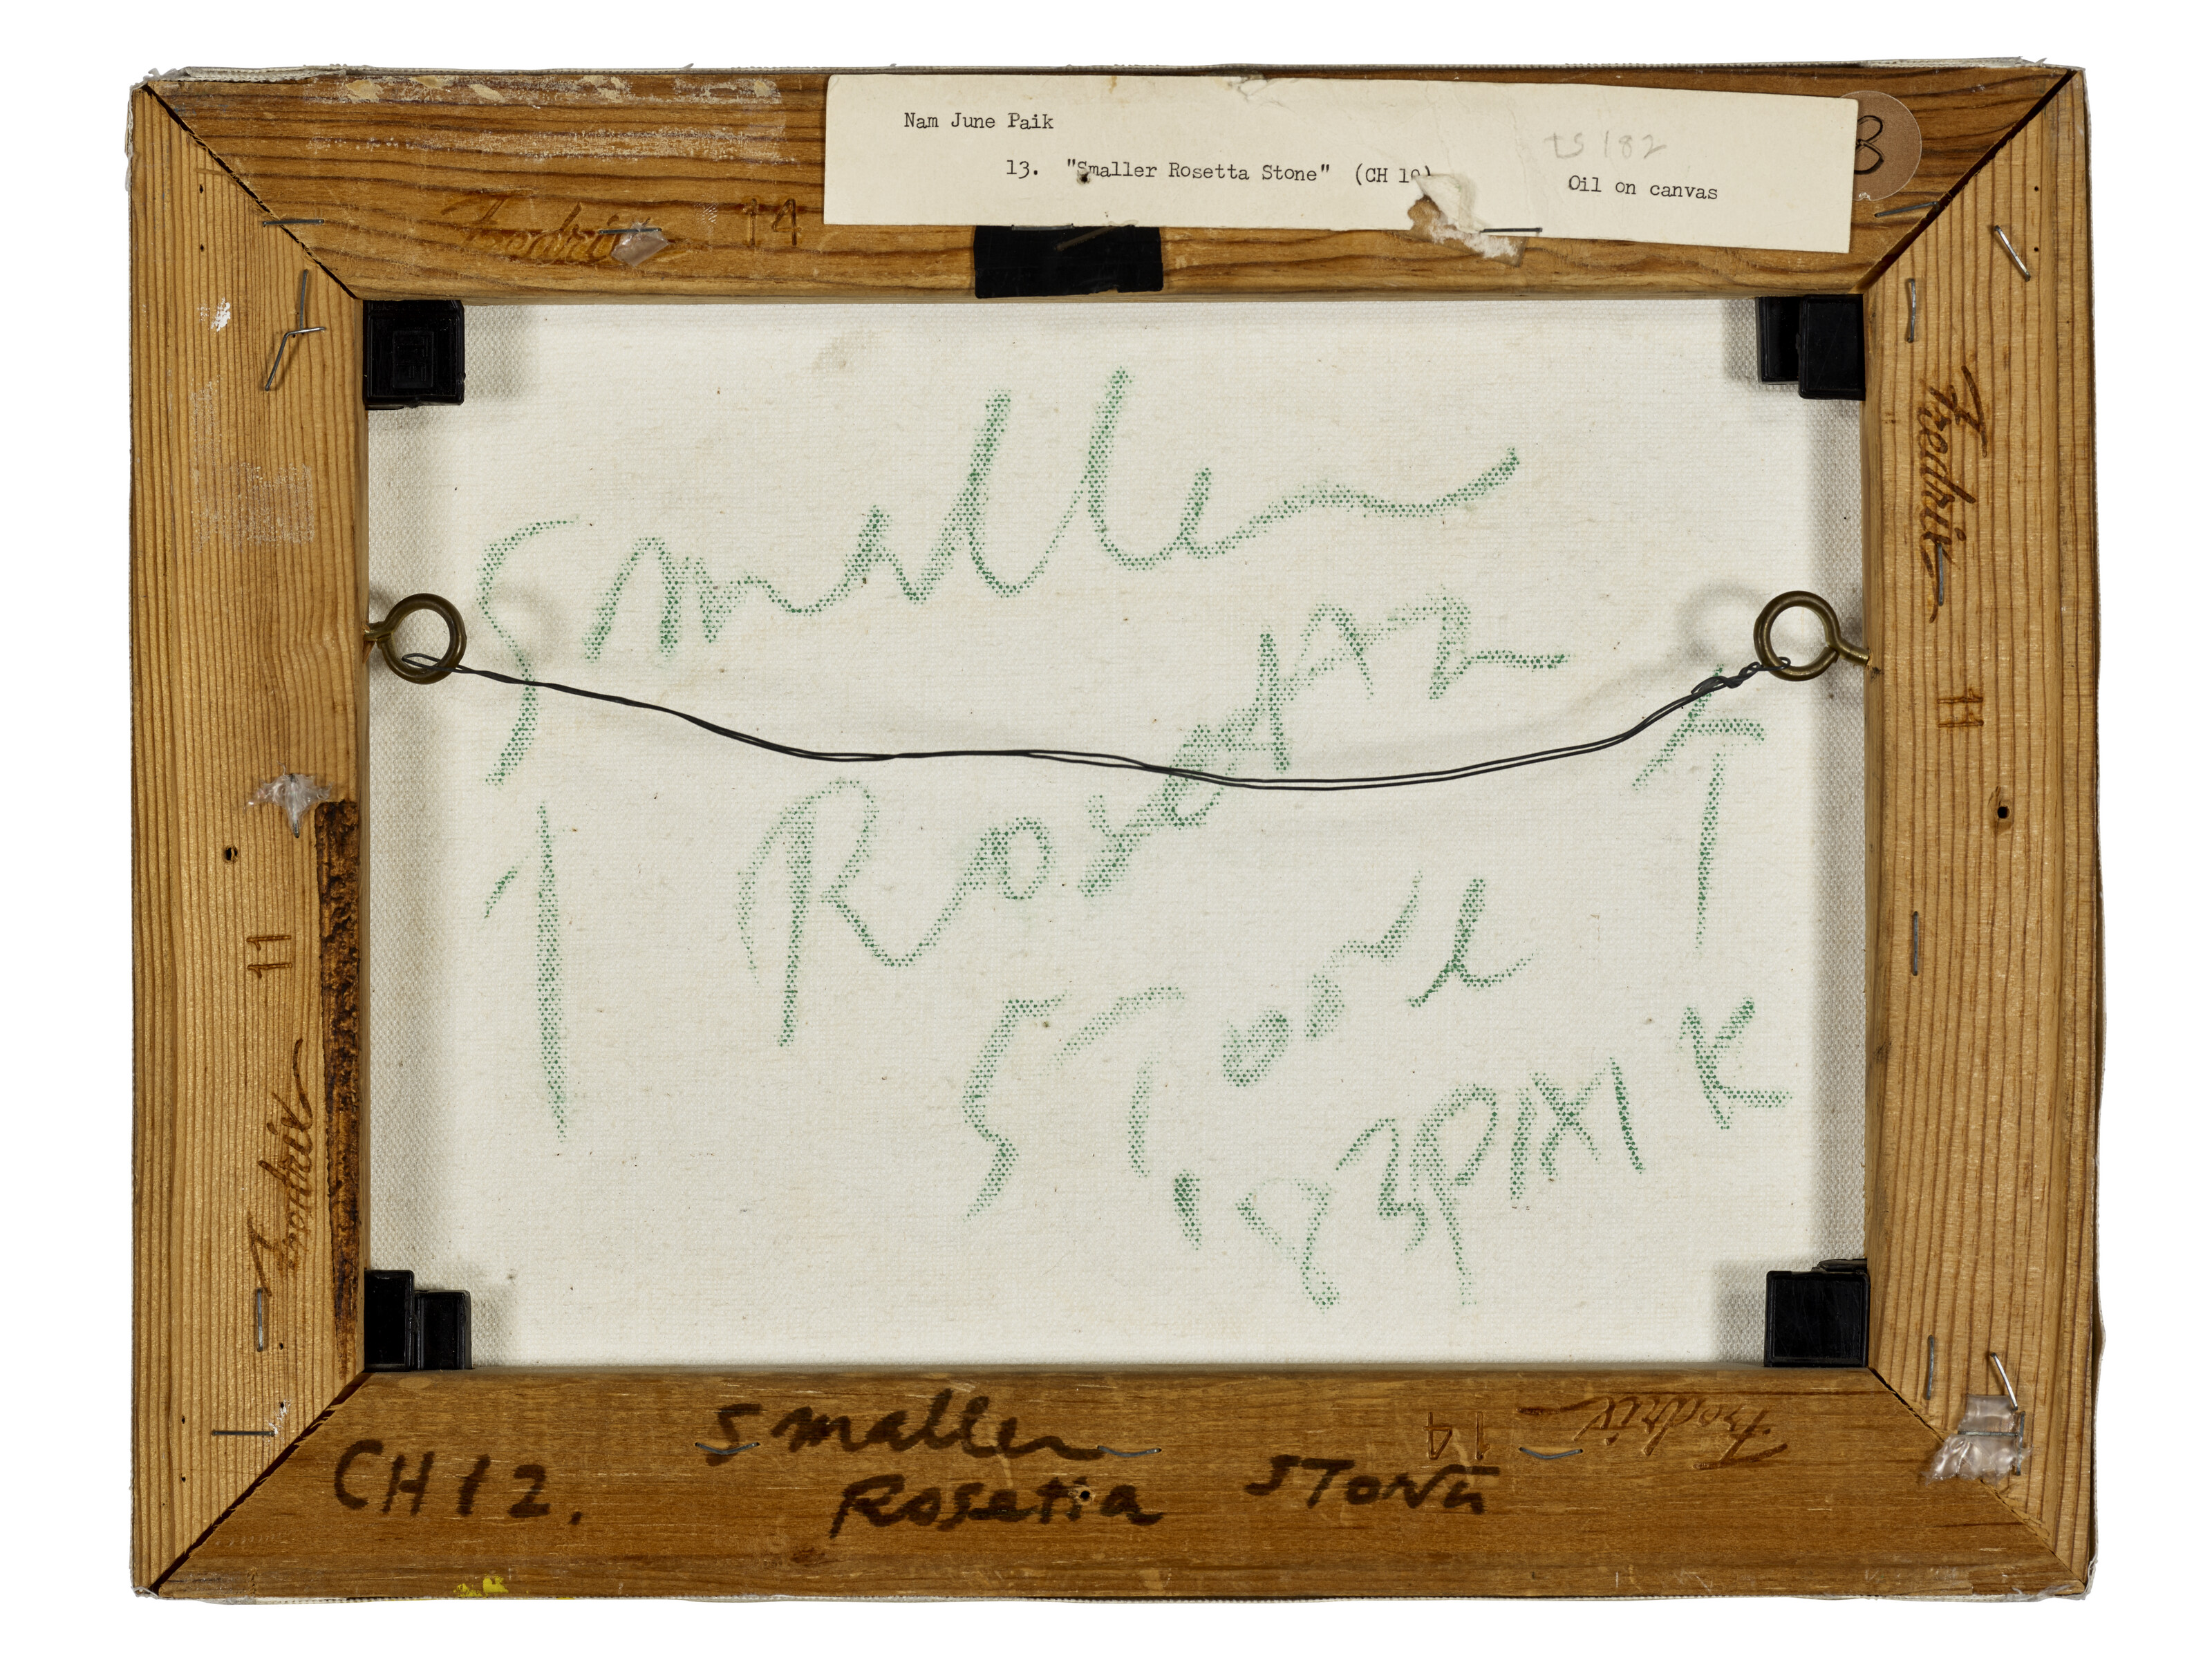 Nam June Paik
ts 182
13. "Smaller Rosetta Stone" (CH 10)
Oil on canvas
Fredrix 14
Fredrix
11
Smaller
Rosetta
Stone
11
Fredrix
Smaller
CH 12.
Rosetta Stone
Fredrix 14